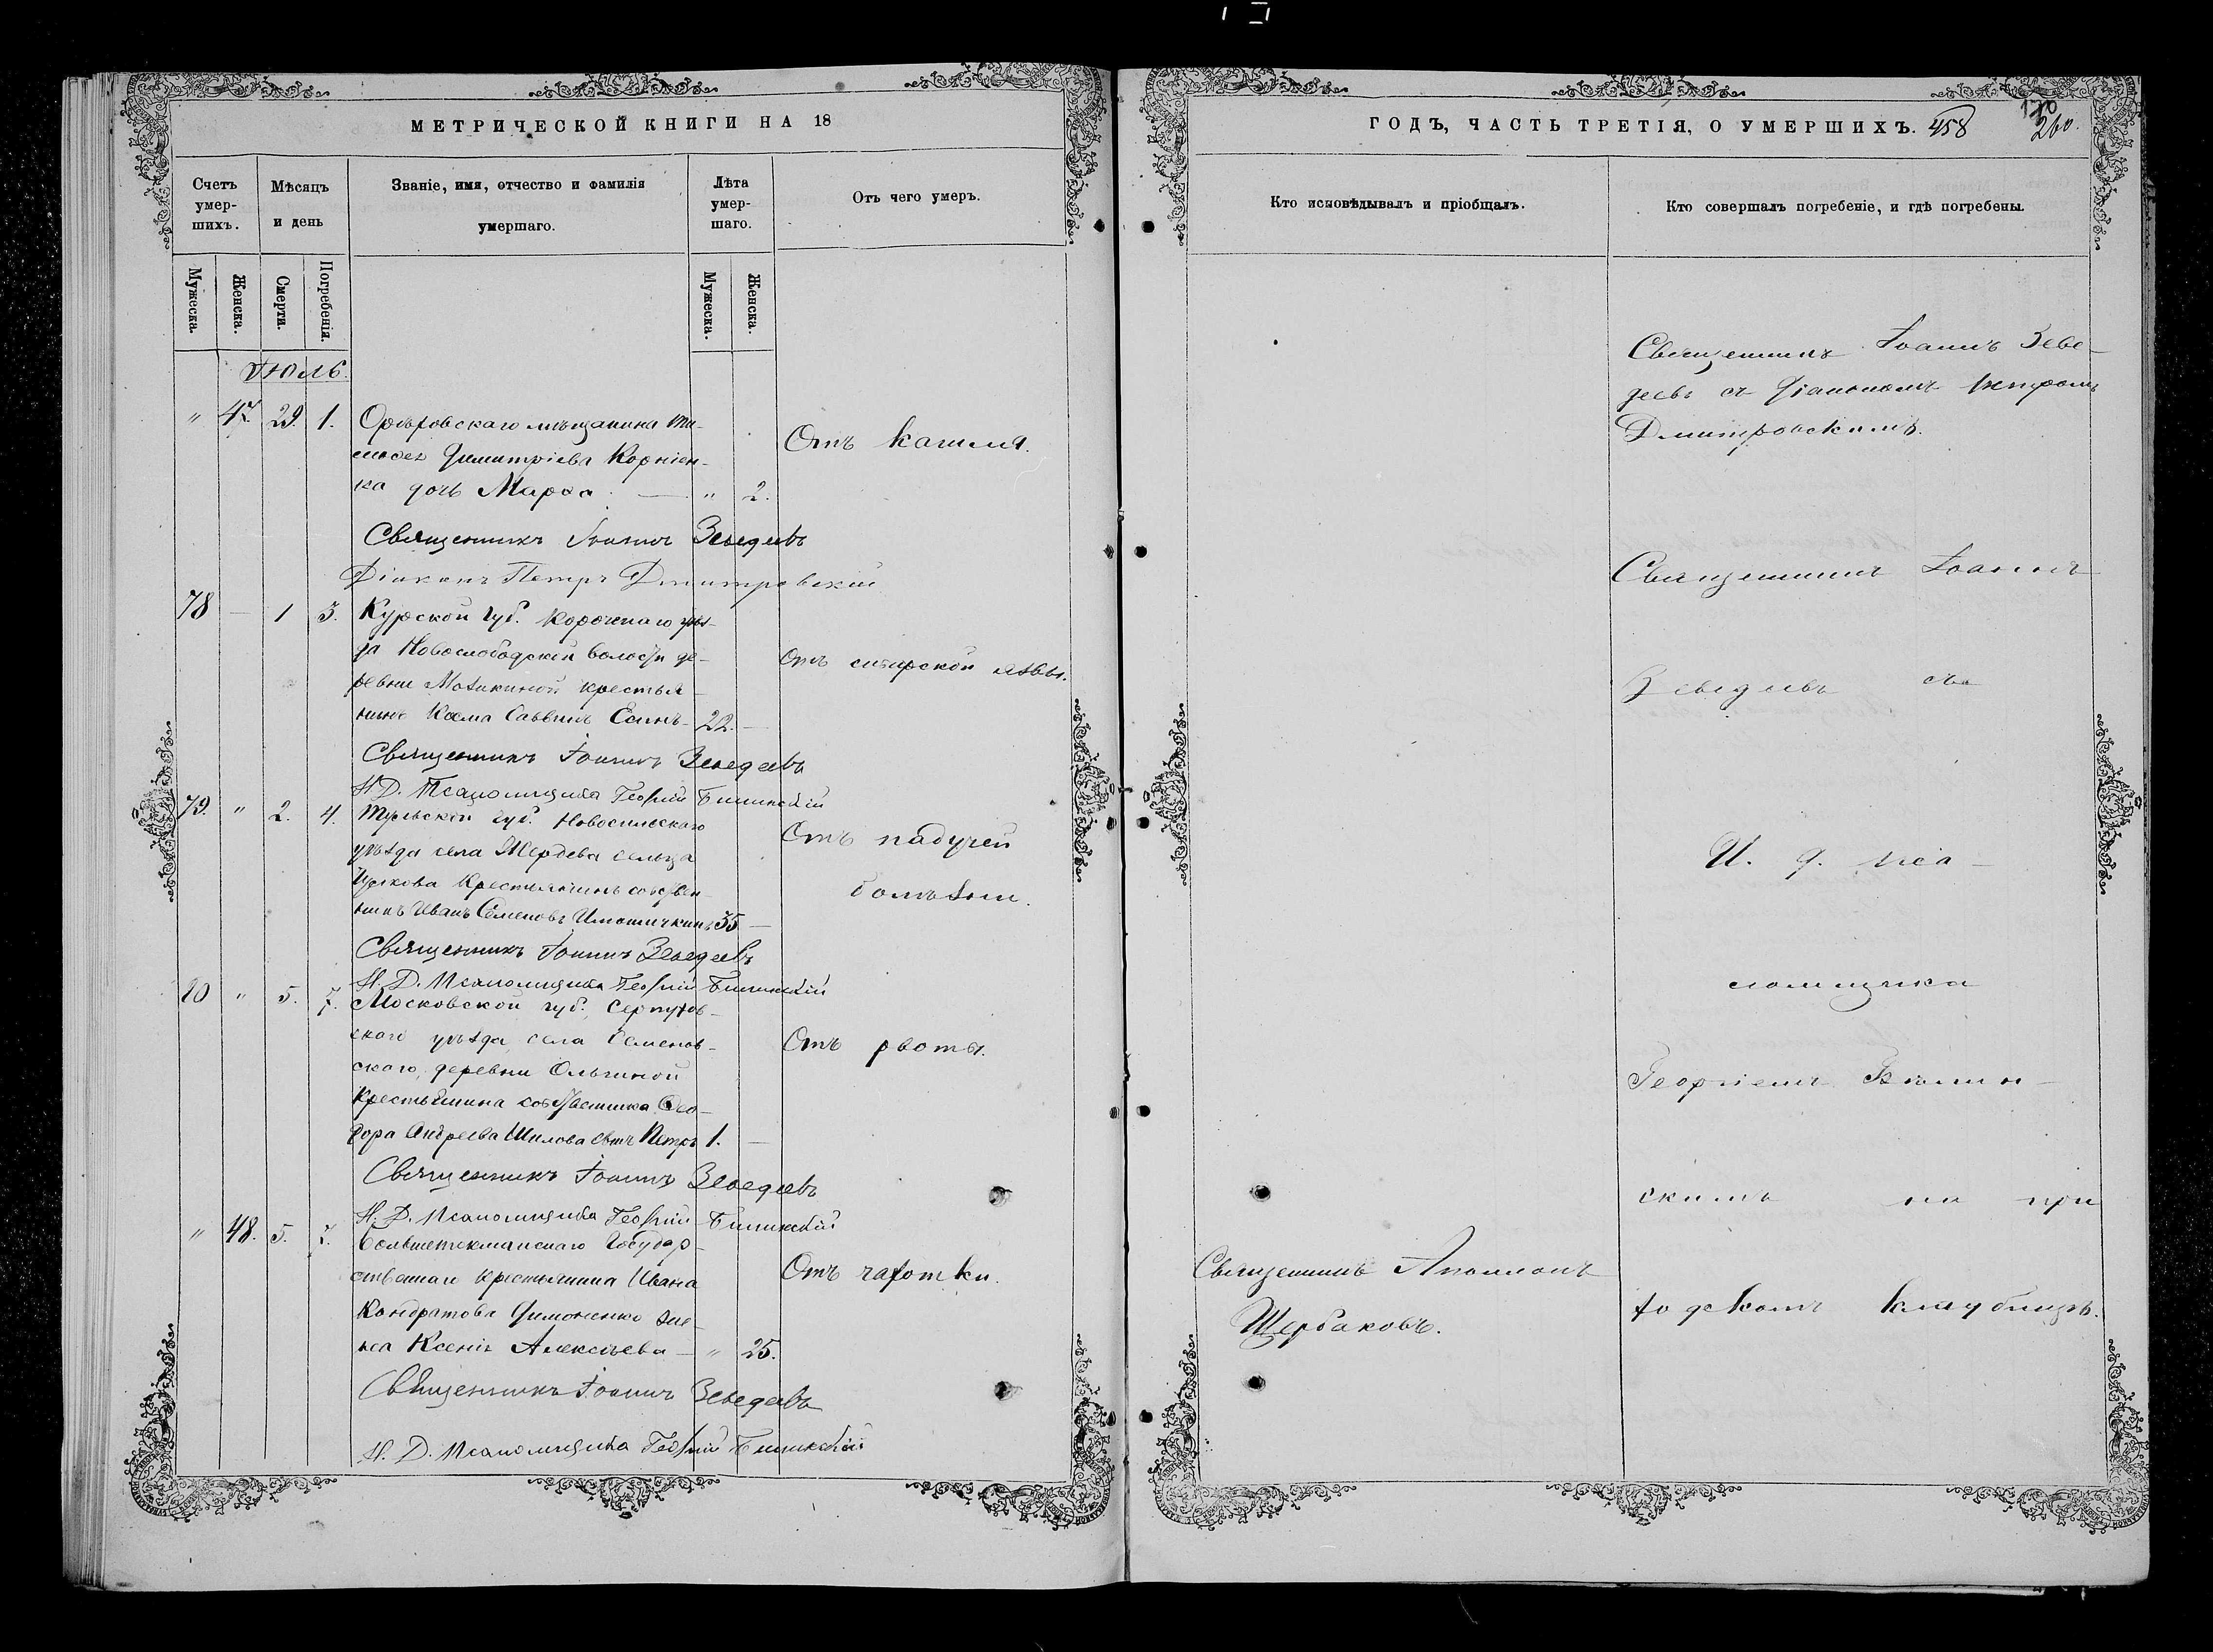 МЕТРИЧЕСКОЙ КНИГИ НА 18
Счетъ умер-шихъ.
Мѣсяцъ и день
Званіе, имя, отчество и фамилія умершаго.
Лѣта умер-шаго.
Отъ чего умеръ.
Мужеска.
Женска.
Смерти.
Погребенія.
Мужеска.
Женска.
Іюль.
" 47. 29. 1. мѣщанина Ти-
моѳея Димитріева Корніен-
ка дочь Марѳа — " 2.
Отъ кашля.
Священникъ Іоаннъ Зеведеевъ
Діаконъ Петръ Дмитровскій
78 — 1 3. Курской губ. Корочанаго уѣз-
да Новослободской волости де-
ревни крестья-
нинъ Косма Саввинъ Есинъ — 22. —
Отъ сибирской язвы.
Священникъ Іоаннъ Зеведеевъ
И. Д. Псаломщика Георгій
79. " 2. 4. Тульской губ. Новосильскаго
уѣзда села Жердева сельца
крестьянинъ собствен-
никъ Иванъ Семеновъ 35 —
Отъ падучей
болѣзни.
Священникъ Іоаннъ Зеведеевъ
И. Д. Псаломщика Георгій
80 " 5. 7. Московской губ. Серпухов-
ского уѣзда села Семенов-
ского, деревни Ольгиной
крестьянина собственника Ѳео-
дора Андреева Шилова сынъ Петръ 1. —
Отъ рвоты.
Священникъ Іоаннъ Зеведеевъ
И. Д. Псаломщика Георгій
" 48. 5. 7. Большетокмакскаго Государ-
ственнаго крестьянина Ивана
Кондратова Димоненко же-
на Ксенія Алексѣева — " 25.
Отъ чахотки.
Священникъ Іоаннъ Зеведеевъ
И. Д. Псаломщика Георгій
ГОДЪ, ЧАСТЬ ТРЕТІЯ, О УМЕРШИХЪ. 458
260.
Кто исповѣдывалъ и пріобщалъ.
Кто совершалъ погребеніе, и гдѣ погребены.
Священникъ Іоаннъ Зеве-
деевъ съ Діакономъ Петромъ
Дмитровскимъ.
Священникъ Іоаннъ
Зеведеевъ съ
И. д. пса-
ломщика
Георгіемъ
скимъ на при
ходскомъ кладбищѣ.
Священникъ Аполлонъ
Щербаковъ.